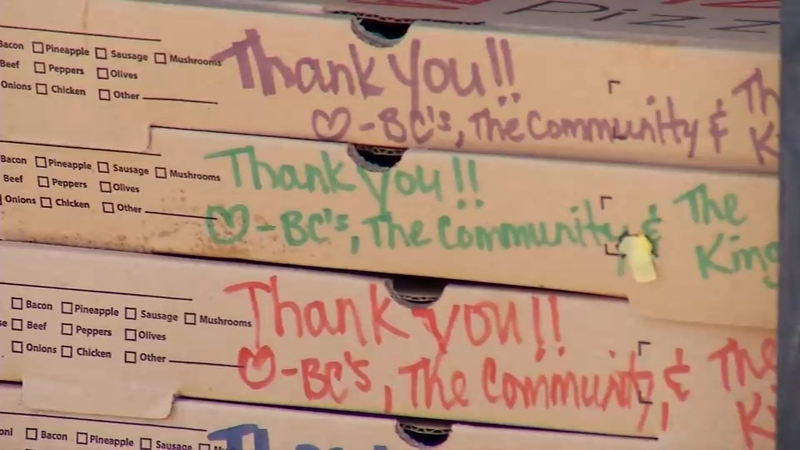 Pizz
Bacon Pineapple Sausage Mushrooms
Beef Peppers Olives
Onions Chicken Other
Thank You!!
♡-BC's, The Community & Th
K
Bacon Pineapple Sausage Mushrooms
Beef Peppers Olives
Onions Chicken Other
Thank You!!
♡-BC's, The Community & The
King
Bacon Pineapple Sausage Mushrooms
Beef Peppers Olives
Onions Chicken Other
Thank You!!
♡-BC's, The Community, & The
K
Bacon Pineapple Sausage